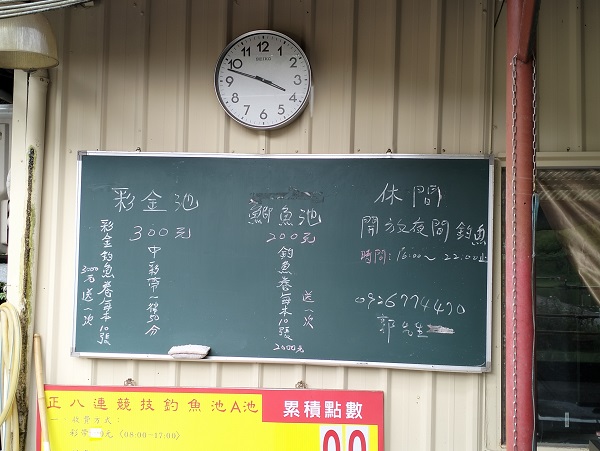 12
1
2
3
4
5
6
7
8
9
10
11
SEIKO
彩金池
300元
中彩帶一律50分
彩金釣魚卷每本10張
3000元 送一次
鯽魚池
200元
釣魚卷每本10張
2000元
送一次
休閒
開放夜間釣魚
時間:16:00~22:00止
0926774470
郭先生
正八連競技釣魚池A池
累積點數
一、收費方式:
元 (08:00-17:00)
00